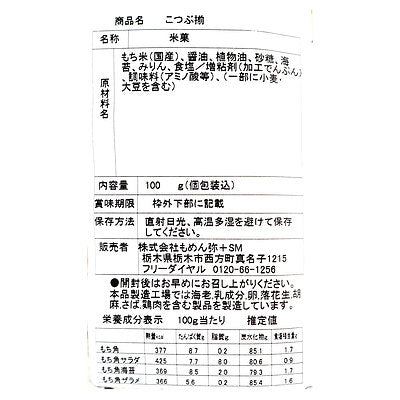 商品名 こつぶ揃
名称 米菓
原材料名 もち米(国産)、醤油、植物油、砂糖、海
苔、みりん、食塩／増粘剤(加工でんぷん)
、調味料(アミノ酸等)、(一部に小麦・
大豆を含む)
内容量 100 g(個包装込)
賞味期限 枠外下部に記載
保存方法 直射日光、高温多湿を避けて保存
してください。
販売者 株式会社もめん弥＋SM
栃木県栃木市西方町真名子1215
フリーダイヤル 0120-66-1256
●開封後はお早めにお召し上がりください。
本品製造工場では海老、乳成分、卵、落花生、胡
麻、さば、鶏肉を含む製品を製造しています。
栄養成分表示 100g当たり 推定値
熱量kcal たんぱく質g 脂質g 炭水化物g 食塩相当量g
もち角 377 8.7 0.2 85.1 1.7
もち角サラダ 425 7.7 8.0 80.6 0.9
もち角海苔 369 8.5 2.0 79.3 1.7
もち角ザラメ 366 5.6 0.2 85.4 1.6